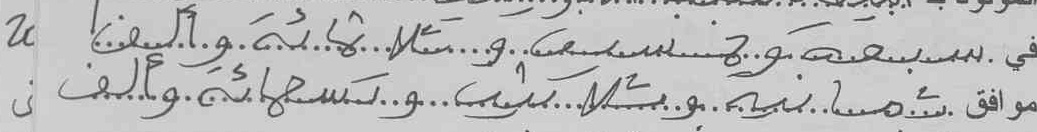 في سبعة و خمسين و ثلاثمائة و ألف
موافق ثمانية و ثلاثين و تسعمائة و ألف